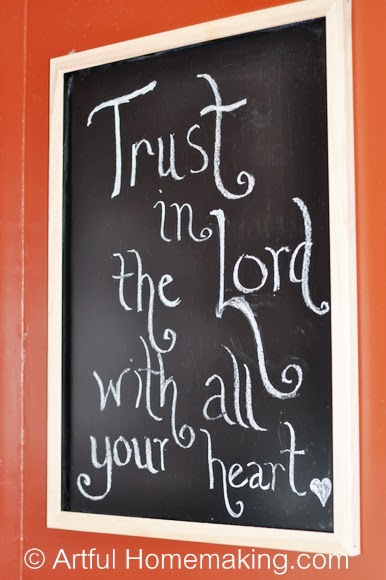 Trust
in
the Lord
with all
your heart.
© Artful Homemaking.com